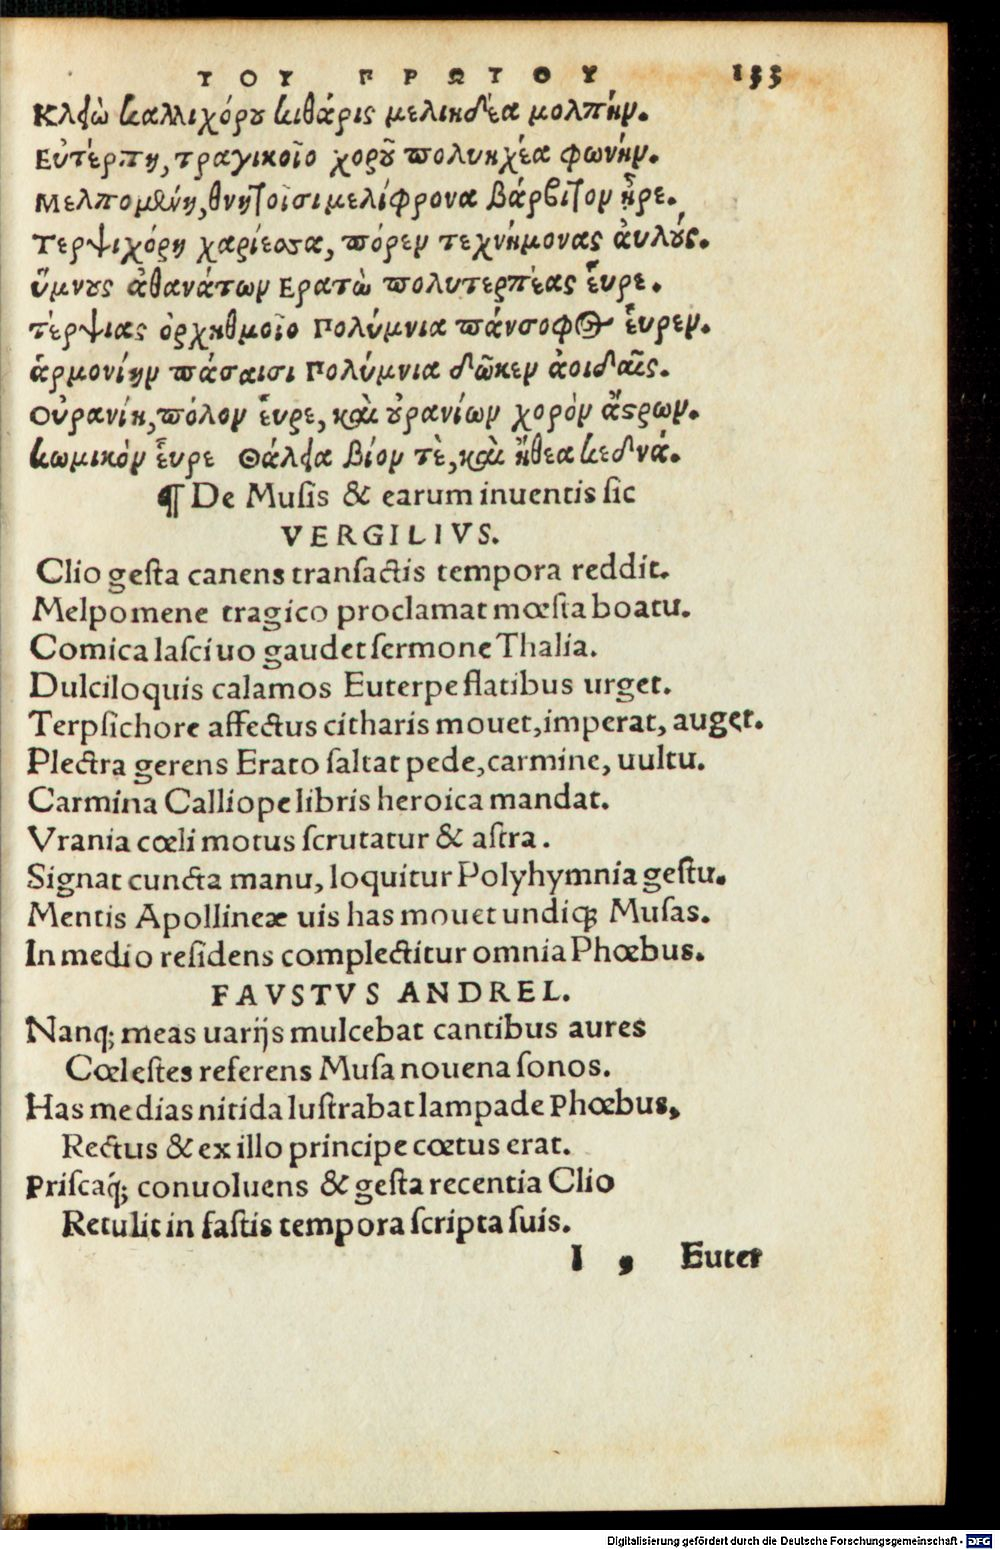 ΤΟΥ ΠΡΩΤΟΥ 133
Κλειὼ καλλιχόρου κιθάρις μελικδέα μολπήν.
Εὐτέρπη, τραγικοῖο χοροῦ πολυηχέα φωνήν.
Μελπομένη, θνητοῖσι μελίφρονα βάρβιτον ἧρε.
Τερψιχόρη χαρίεσσα, πόρεν τεχνήμονας ἀυλούς.
ὕμνους ἀθανάτων Ερατὼ πολυτερπέας εὗρε.
τέρψιας ὀρχηθμοῖο Πολύμνια πάνσοφος εὗρεν.
ἁρμονίην πάσαισι Πολύμνια δῶκεν ἀοιδαῖς.
Οὐρανίη, πόλον εὗρε, καὶ οὐρανίων χορὸν ἄστρων.
κωμικὸν εὗρε Θάλεια βίον τὲ, καὶ ἤθεα κεδνά.
¶ De Musis & earum inuentis sic
VERGILIVS.
Clio gesta canens transactis tempora reddit.
Melpomene tragico proclamat mœsta boatu.
Comica lasciuo gaudet sermone Thalia.
Dulciloquis calamos Euterpe flatibus urget.
Terpsichore affectus citharis mouet, imperat, auget.
Plectra gerens Erato saltat pede, carmine, uultu.
Carmina Calliope libris heroica mandat.
Vrania cœli motus scrutatur & astra.
Signat cuncta manu, loquitur Polyhymnia gestu.
Mentis Apollineæ uis has mouet undiq; Musas.
In medio residens complectitur omnia Phœbus.
FAVSTVS ANDREL.
Nanq; meas uarijs mulcebat cantibus aures
Cœlestes referens Musa nouena sonos.
Has medias nitida lustrabat lampade Phœbus,
Rectus & ex illo principe cœtus erat.
Priscaq́; conuoluens & gesta recentia Clio
Retulit in fastis tempora scripta suis.
I , Euter
Digitalisierung gefördert durch die Deutsche Forschungsgemeinschaft - DFG